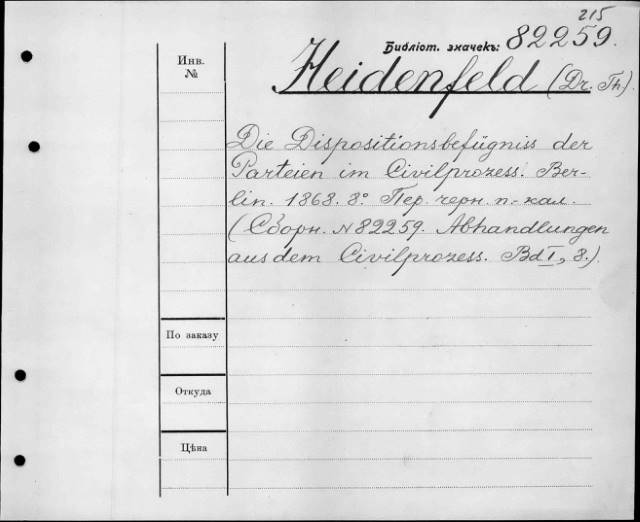 215
Библіот. значекъ: 82259.
Инв.
№
Heidenfeld (Dr. Th).
Die Dispositionsbefügniss der
Parteien im Civilprozess. Ber-
lin. 1868. 8° Пер. черн. п.-кал.
(Сборн. N 82259. Abhandlungen
aus dem Civilprozess. Bd I, 8.)
По заказу
Откуда
Цѣна